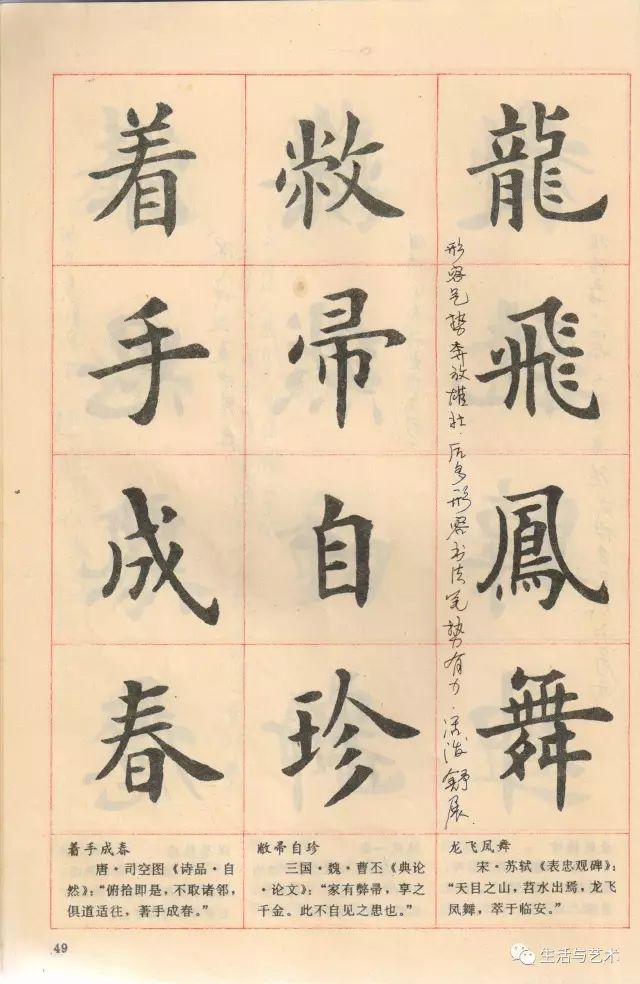 龍飛鳳舞
形容气势奔放雄壮.后多形容书法笔势有力.活泼舒展.
敝帚自珍
着手成春
着手成春
唐·司空图《诗品·自
然》：“俯拾即是，不取诸邻，
俱道适往，著手成春。”
敝帚自珍
三国·魏·曹丕《典论
·论文》：“家有弊帚，享之
千金。此不自见之患也。”
龙飞凤舞
宋·苏轼《表忠观碑》：
“天目之山，苕水出焉，龙飞
凤舞，萃于临安。”
49
生活与艺术